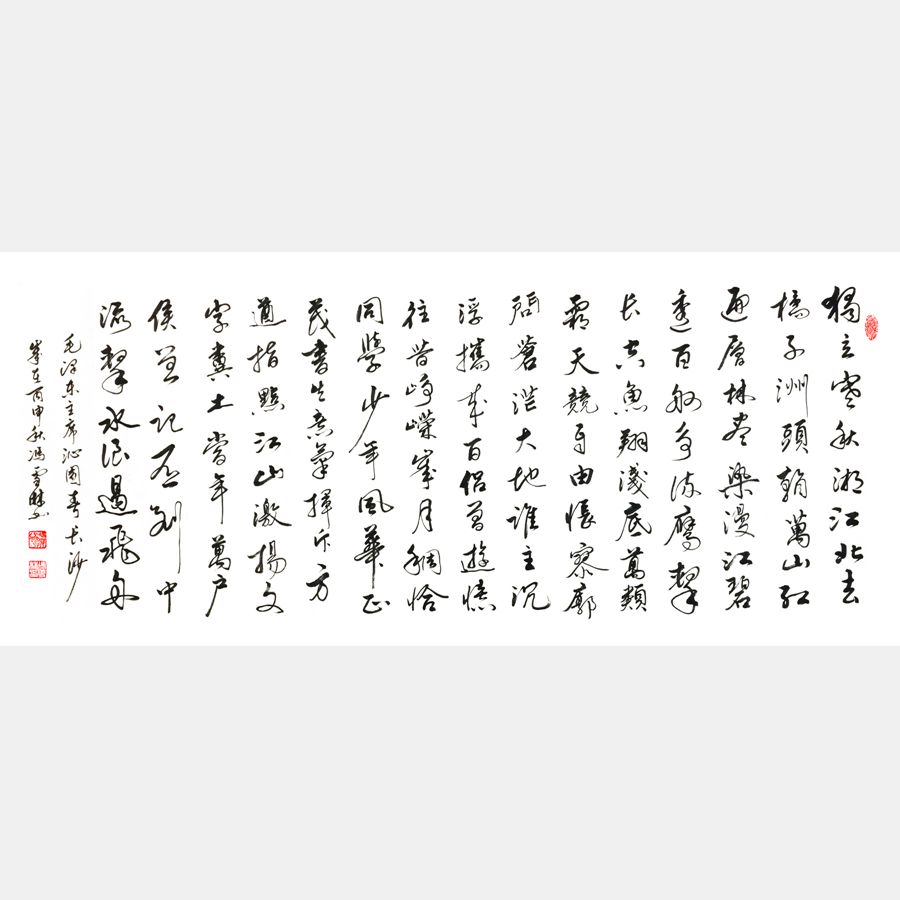 獨立寒秋湘江北去
橘子洲頭萬山红
遍層林盡染漫江碧
透百舸爭流鷹擊
长空魚翔淺底萬類
霜天競自由悵寥廓
問蒼茫大地誰主沉
浮攜來百侣曾遊憶
往昔崢嶸歲月稠恰
同學少年風華正
茂書生意氣揮斥方
遒指點江山激揚文
字糞土當年萬户
侯曾記否到中
流擊水浪遏飛舟
毛泽东主席沁園春长沙
歲在丙申秋冯雪书